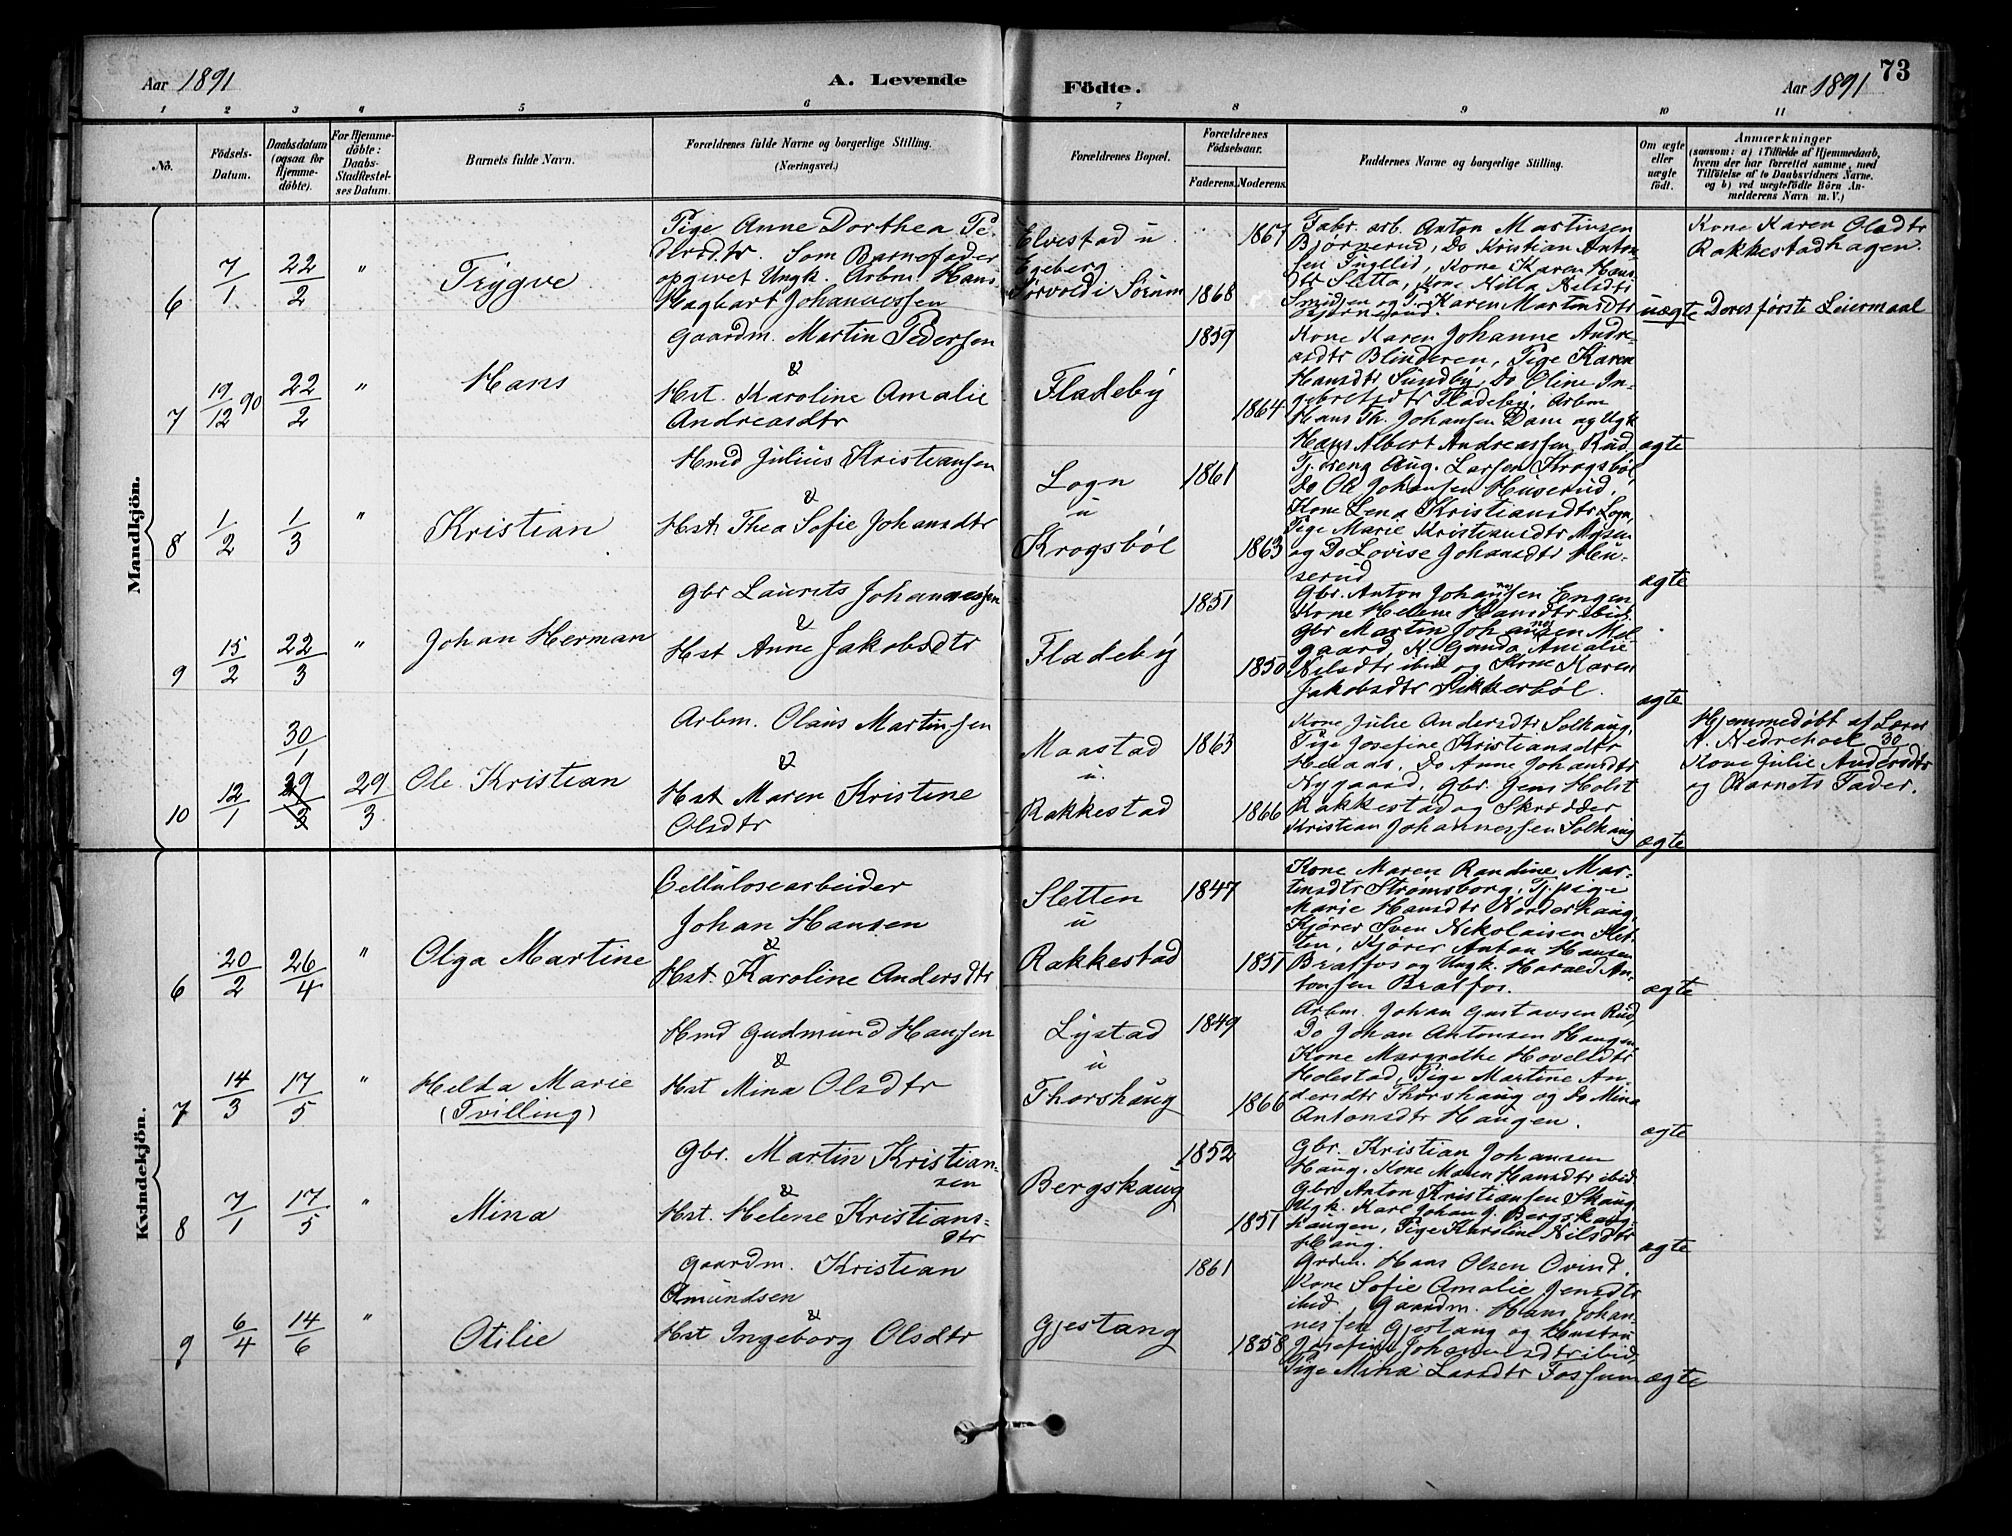 Aar 1891
A. Levende
Födte.
Aar 1891
73
1 2 3 4 5 6 7 8 9 10 11
No.
Födsels-Datum.
Daabsdatum (ogsaa for Hjemme-döbte).
For Hjemme-döbte: Daabs-Stadfæstel-ses Datum.
Barnets fulde Navn.
Forældrenes fulde Navne og borgerlige Stilling.
(Næringsvei.)
Forældrenes Bopæl.
Forældrenes Födselsaar.
Faderens. Moderens.
Faddernes Navne og borgerlige Stilling.
Om ægte eller uægte födt.
Anmærkninger
(saasom: a) i Tilfælde af Hjemmedaab, hvem der har forrettet samme, med Tilföielse af to Daabsvidners Navne. og b) ved uægtefödte Börn An-melderens Navn m. V.)
Mandkjön.
6
7/1
22/2
"
Trygve
Pige Anne Dorthea Pe-
dersdtr. Som Barnefader
opgivet Ungk. Arbm Hans
Hagbart Johannessen
Elvestad u
Egeberg
Sørvold i Sørum
1868
1867
Fabr. arb. Anton Martinsen
Bjørnerud, Do Kristian Anton-
sen, Kone Karen Hans-
dtr Sletta, Kone Nilsdtr
og P. Karen Martinsdtr
uægte
Kone Karen Olsdtr
Rakkestadhagen.
Deres første Leiermaal
7
19/12 90
22/2
"
Hans
Gaardm. Martin Pedersen
&
Hst. Karoline Amalie
Andreasdtr
Fladeby
1859
1864
Kone Karen Johanne Andre-
asdtr Blinderen, Pige Karen
Hansdtr Sundby, Do Oline In-
gebretsdtr Fladeby, Arbm
Hans Th. Johansen Dam og Ugk
Hans Albert Andreassen Rud
ægte
8
1/2
1/3
"
Kristian
Hmd Julius Kristiansen
&
Hst. Thea Sofie Johansdtr
Logn
u
Krogsböl
1861
1863
Tj. dreng Aug. Larsen Krogsböl,
Do Ole Johansen Huserud,
Kone Lena Kristiansdtr Logn,
Pige Marie Kristiansdtr Mosen
og Do Lovise Johansdtr Hu-
serud
ægte
9
15/2
22/3
"
Johan Herman
Gbr Laurits Johannessen
&
Hst Anne Jakobsdtr
Fladeby
1851
1850
Gbr. Anton Johannesen Engen
Kone Helene Hansdtr ibid.
Gbr Martin Johannesen Mel-
gaard, K. Gunda Amalie
Nilsdtr ibid og Kone Karen
Jakobsdtr Sikkerböl.
ægte
10
12/1
30/1
29/3
29/3
Ole Kristian
Arbm. Olaus Martinsen
&
Hst Maren Kristine
Olsdtr
Maastad
u.
Rakkestad
1863
1866
Kone Julie Andersdtr Solhaug,
Pige Josefine Kristiansdtr
Hellaas, Do Anne Johansdtr
Nygaard, Gbr. Jens Holst
Rakkestad og Skrædder
Kristian Johannessen Solhaug
ægte
Hjemmedøbt af Lærer
A. Nedrehoel 30
Kone Julie Andersdtr
og Barnets Fader.
Kvindekjön.
6
20/2
26/4
"
Olga Martine
Cellulosearbeider
Johan Hansen
&
Hst. Karoline Andersdtr
Sletten
u
Rakkestad
1847
1851
Kone Maren Randine Mar-
tinsdtr Strømsborg, Tj. pige
Marie Hansdtr Norderhaug,
Kjører Sven Nikolaisen Slet-
ten, Kjører Anton Hansen
Bratfos og Ungk. Harald An-
tonsen Bratfos.
ægte
7
14/3
17/5
"
Helda Marie
(Tvilling)
Hmd Gudmund Hansen
&
Hst Mina Olsdtr
Lystad
u
Thorshaug
1849
1866
Arbm. Johan Gustavsen Rud,
Do Johan Antonsen Haugen
Kone Margrethe Hovelsdtr
Holestad, Pige Martine An-
dersdtr Thorshaug og Do Mina
Antonsdtr Haugen.
ægte
8
7/1
17/5
"
Mina
Gbr. Martin Kristian-
sen
&
Hst. Helene Kristians-
dtr
Bergskaug
1852
1851
Gbr. Kristian Johansen
Haug, Kone Maren Hansdtr ibid
Gbr. Anton Kristiansen Skaug
Ugk. Karl Johan J. Bergskaug-
haugen, Pige Karoline Nilsdtr
Haug.
ægte
9
6/4
14/6
"
Otilie
Gaardm. Kristian
Amundsen
&
Hst Ingeborg Olsdtr
Gjestang
1861
1858
Grdm. Hans Olsen Ovind,
Kone Sofie Amalie Jensdtr
ibid, Gaardm. Hans Johan-
nessen Gjestang og Hustru
Josefine Johannesdtr ibid,
Pige Mina Larsdtr Fossum
ægte